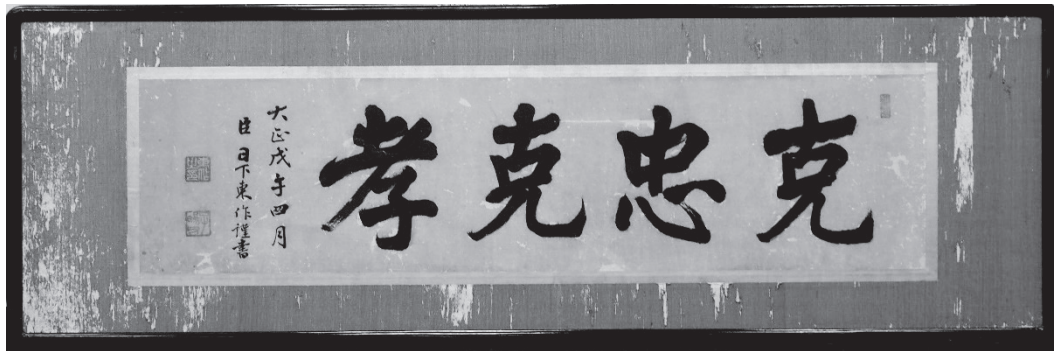 克忠克孝
大正戊午四月
臣日下東作謹書